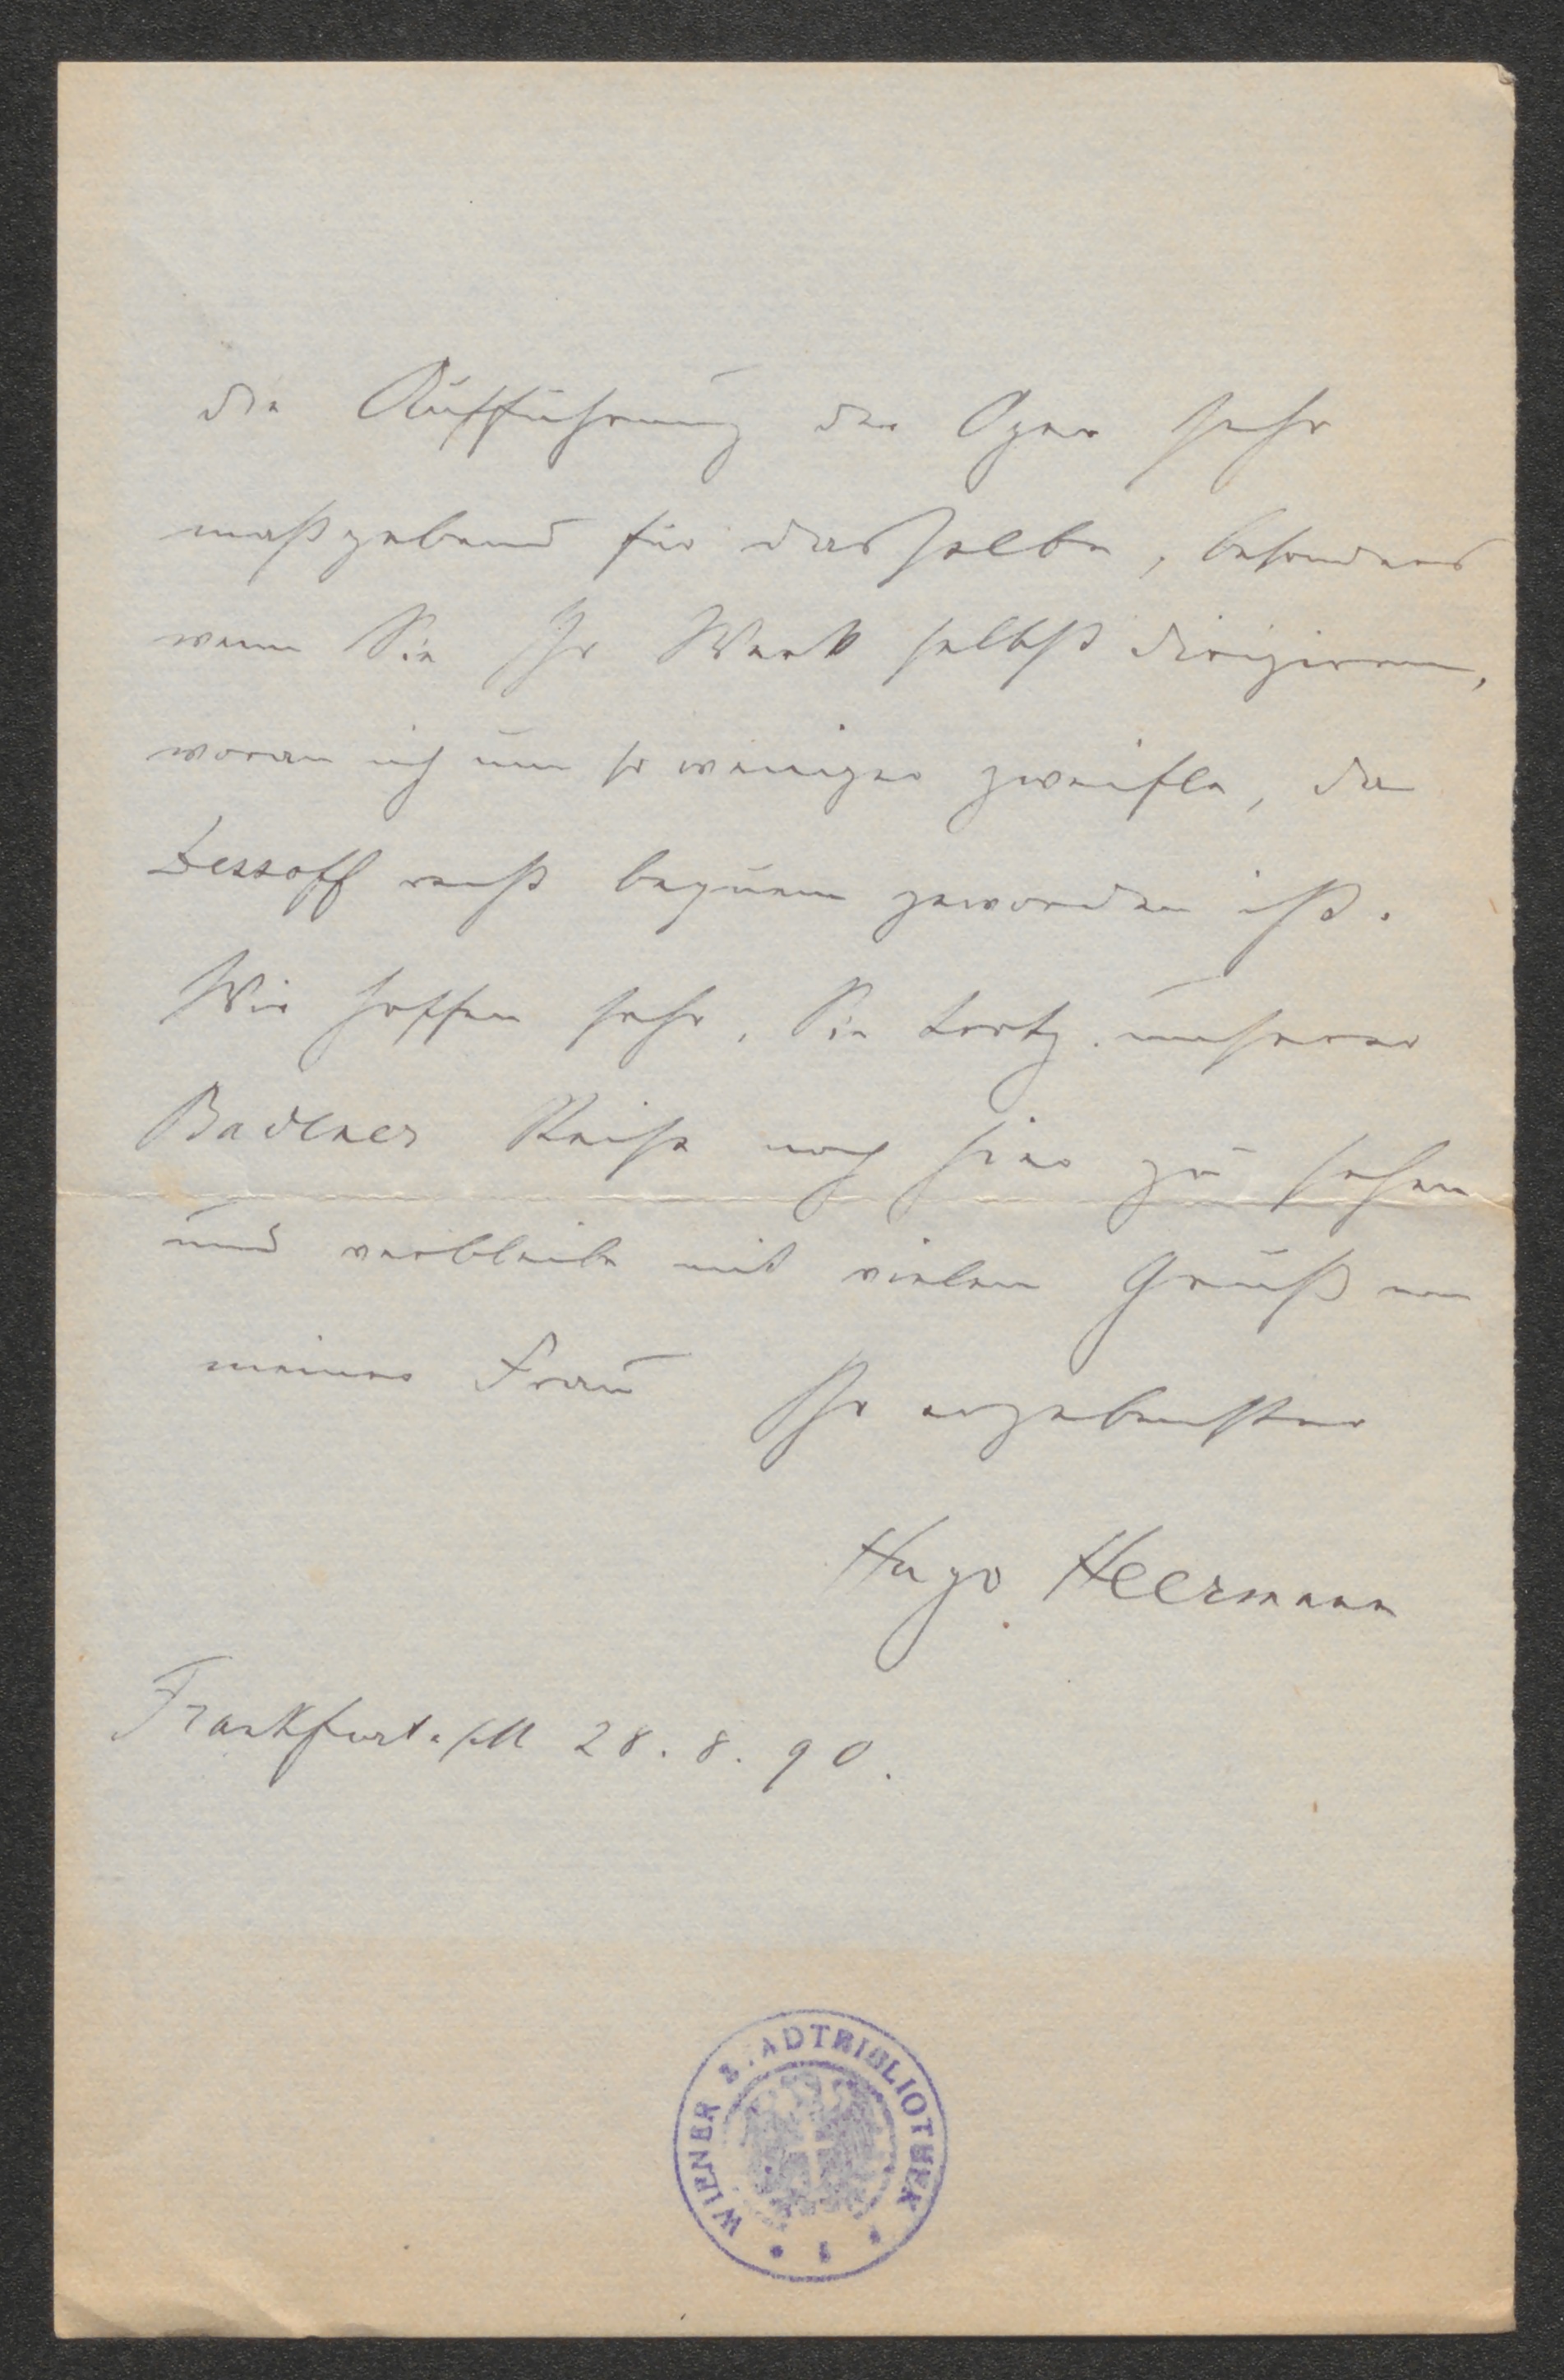 die Aufführung der Oper sehr
maßgebend für dasselbe, besonders
wenn Sie Ihr Werk selbst dirigiren,
woran ich um so weniger zweifle, da
Dessoff recht bequem geworden ist.
Wir hoffen sehr, Sie trotz unserer
Badener Reise noch hier zu sehen
und verbleibe mit vielen Gruß von
meiner Frau Ihr ergebenster
Hugo Heermann
Frankfurt a/M 28.8.90.
WIENER STADTBIBLIOTHEK